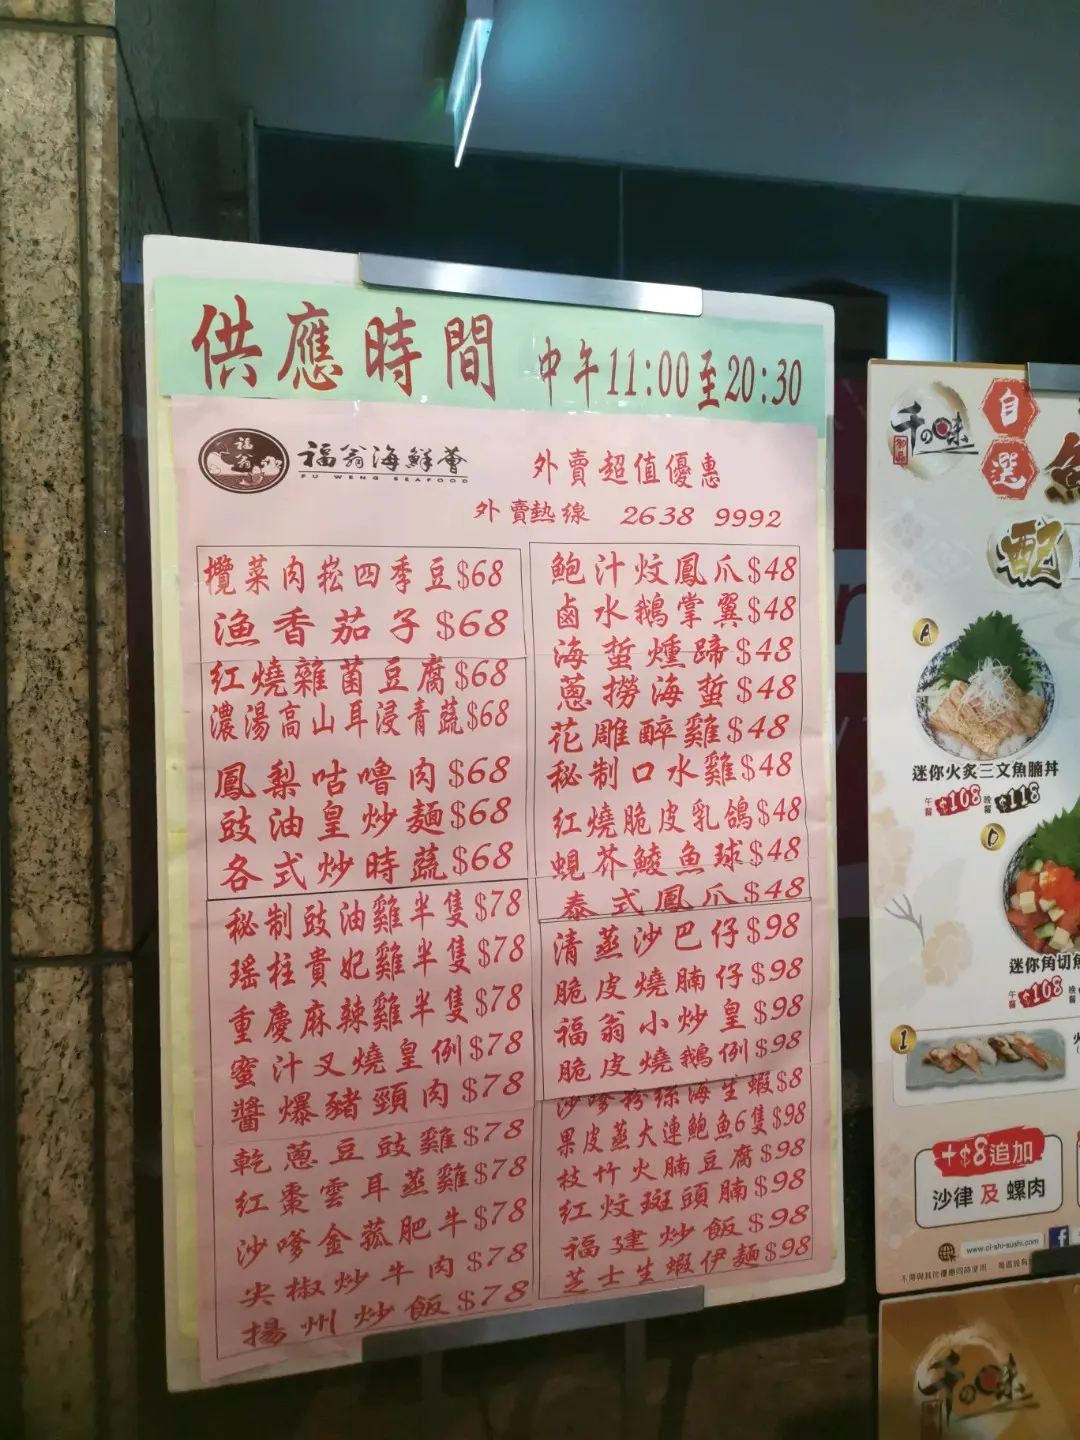 供應時間 中午11:00至20:30
福翁
福翁海鮮薈
FU WENG SEAFOOD
外賣超值優惠
外賣熱線 2638 9992
欖菜肉崧四季豆$68
漁香茄子$68
紅燒雜菌豆腐$68
濃湯高山耳浸青蔬$68
鳳梨咕嚕肉$68
豉油皇炒麵$68
各式炒時蔬$68
秘制豉油雞半隻$78
瑤柱貴妃雞半隻$78
重慶麻辣雞半隻$78
蜜汁叉燒皇例$78
醬爆豬頸肉$78
乾蔥豆豉雞$78
紅棗雲耳蒸雞$78
沙嗲金菰肥牛$78
尖椒炒牛肉$78
揚州炒飯$78
鮑汁炆鳳爪$48
鹵水鵝掌翼$48
海蜇燻蹄$48
蔥撈海蜇$48
花雕醉雞$48
秘制口水雞$48
紅燒脆皮乳鴿$48
蜆芥鯪魚球$48
泰式鳳爪$48
清蒸沙巴仔$98
脆皮燒腩仔$98
福翁小炒皇$98
脆皮燒鵝例$98
沙嗲粉絲海生蝦$8
果皮蒸大連鮑魚6隻$98
枝竹火腩豆腐$98
紅炆斑頭腩$98
福建炒飯$98
芝士生蝦伊麵$98
千の味
御品
自選
配
A
迷你火炙三文魚腩丼
午餐$108 晚餐$118
D
迷你角切魚
午餐$108 晚餐
I
+$8追加
沙律 及 螺肉
www.oi-shi-sushi.com
千の味